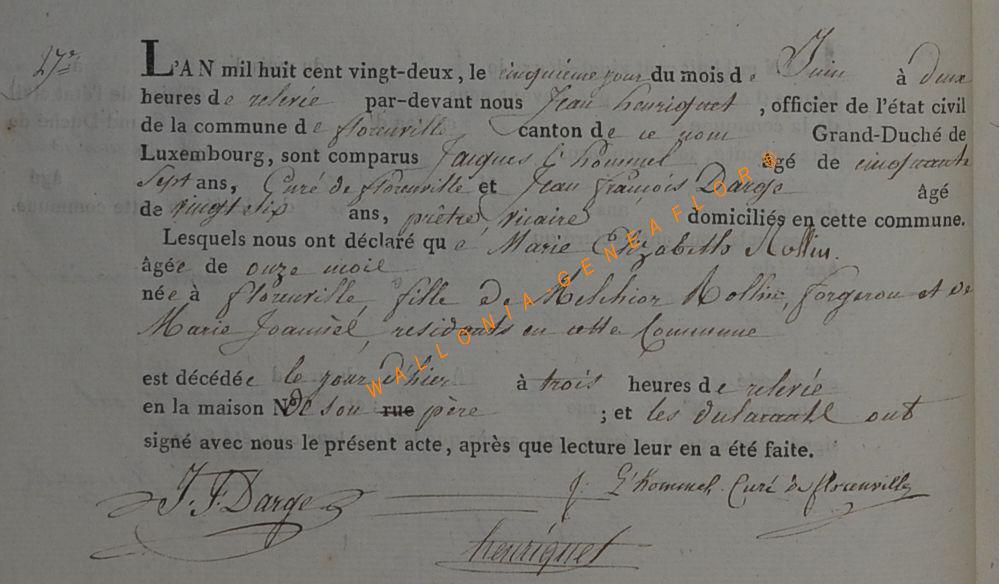 27e
L'AN mil huit cent vingt-deux, le cinquieme jour du mois de Juin à deux
heures de relevée par-devant nous Jean henriquet, officier de l'état civil
de la commune de florenville canton de ce nom Grand-Duché de
Luxembourg, sont comparus Jacques L'hommel âgé de cinquante
sept ans, Curé de florenville et Jean françois Darge âgé
de vingt six ans, prêtre vicaire domiciliés en cette commune.
Lesquels nous ont déclaré que Marie Elizabeth Rollin.
âgée de onze mois
née à florenville, fille de Melchior Rollin, forgeron et de
Marie residents en cette Commune
est décédée le jour d'hier à trois heures de relevée
en la maison No de son rue père ; et les déclarants ont
signé avec nous le présent acte, après que lecture leur en a été faite.
J. F. Darge J. L'hommel Curé de florenville
henriquet
WALLONIA-GENEAFLOR©